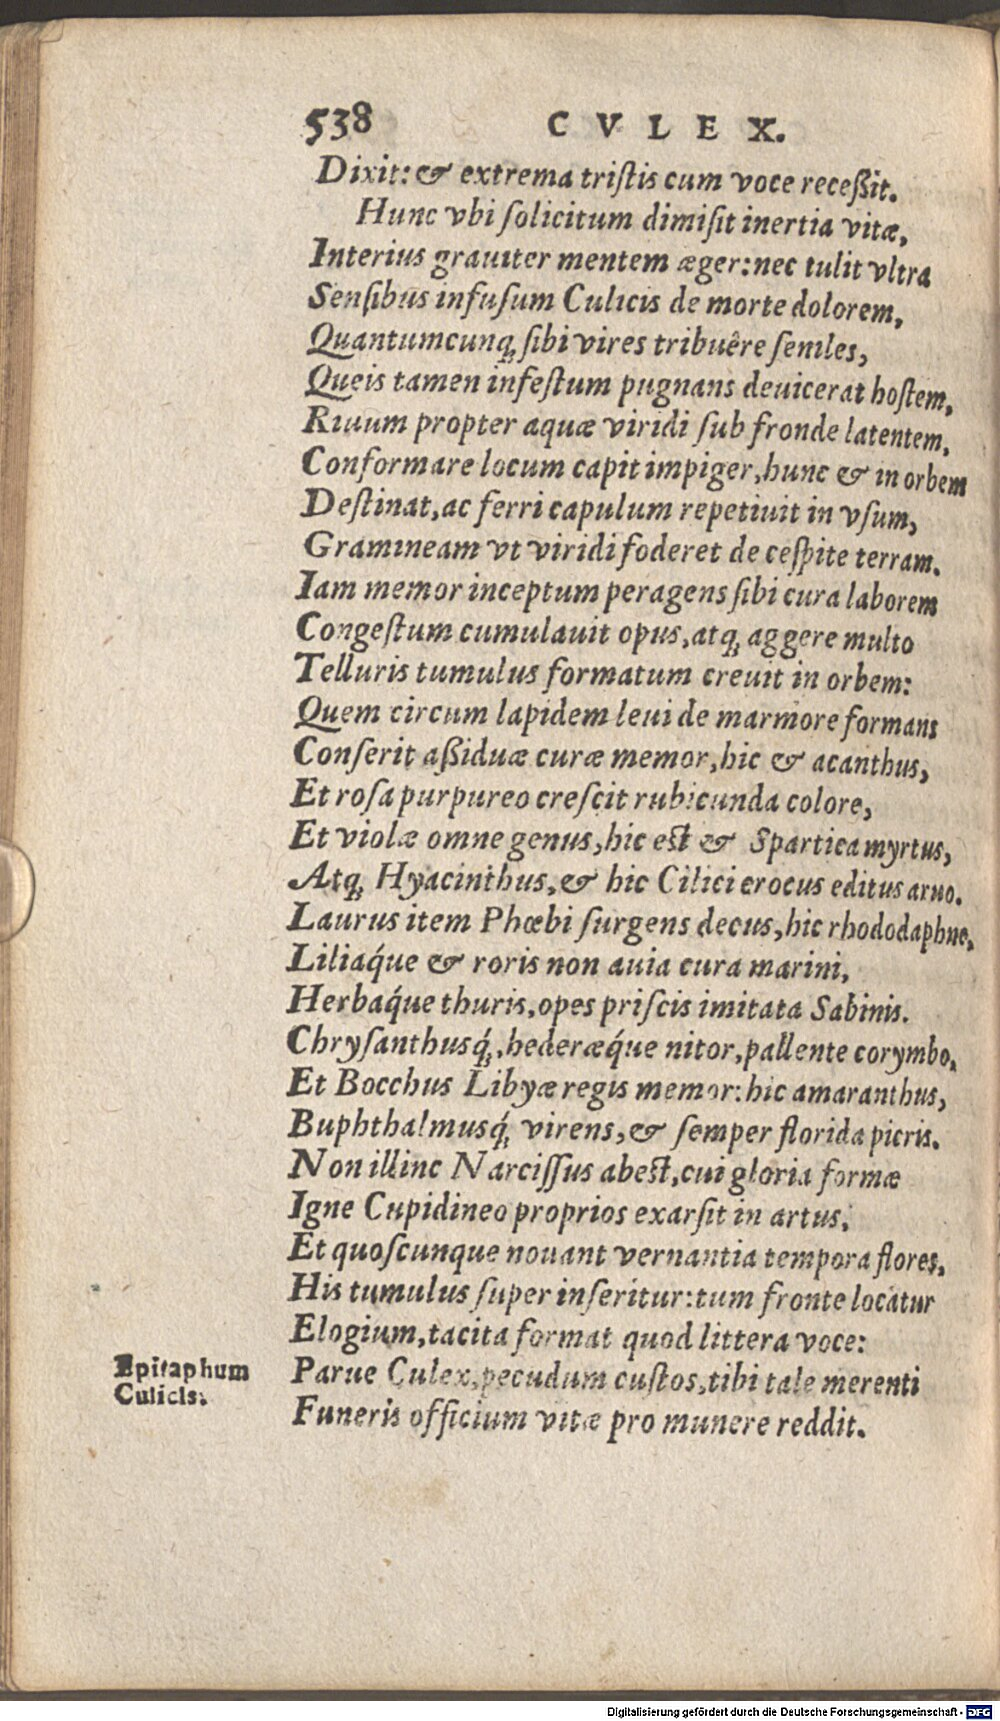 538 CVLEX.
Dixit: & extrema tristis cum voce receßit.
Hunc vbi ſolicitum dimiſit inertia vitæ,
Interius grauiter mentem æger: nec tulit vltra
Senſibus infuſum Culicis de morte dolorem,
Quantumcunq; ſibi vires tribuêre ſeniles,
Queis tamen infeſtum pugnans deuicerat hoſtem,
Riuum propter aquæ viridi ſub fronde latentem,
Conformare locum capit impiger, hunc & in orbem
Deſtinat, ac ferri capulum repetiuit in vſum,
Gramineam vt viridi foderet de ceſpite terram.
Iam memor inceptum peragens ſibi cura laborem
Congeſtum cumulauit opus, atq; aggere multo
Telluris tumulus formatum creuit in orbem:
Quem circum lapidem leui de marmore formans
Conſerit aßiduæ curæ memor, hic & acanthus,
Et roſa purpureo creſcit rubicunda colore,
Et violæ omne genus, hic eſt & Spartica myrtus,
Atq; Hyacinthus, & hic Cilici crocus editus aruo.
Laurus item Phœbi ſurgens decus, hic rhododaphne,
Liliáque & roris non auia cura marini,
Herbáque thuris, opes priſcis imitata Sabinis.
Chryſanthusq́;, hederæq́ue nitor, pallente corymbo,
Et Bocchus Libyæ regis memor: hic amaranthus,
Buphthalmusq́; virens, & ſemper florida picris.
Non illinc Narciſſus abeſt, cui gloria formæ
Igne Cupidineo proprios exarſit in artus,
Et quoſcunque nouant vernantia tempora flores,
His tumulus ſuper inſeritur: tum fronte locatur
Elogium, tacita format quod littera voce:
Epitaphum Culicis.
Parue Culex, pecudum cuſtos, tibi tale merenti
Funeris officium vitæ pro munere reddit.
Digitalisierung gefördert durch die Deutsche Forschungsgemeinschaft - DFG